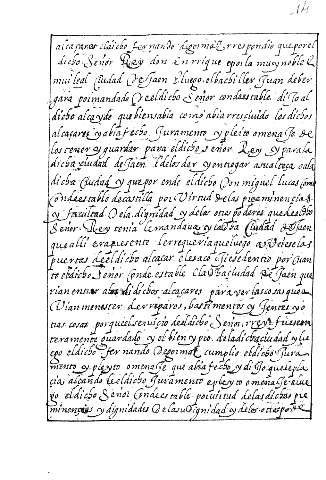 alcaçares el dicho Fernando de gormaz rrespondio que por el
dicho Señor Rey don Enrrique e por la muy noble e
mui leal ciudad de Jaen e luego el bachiller Juan de ber
gara por mandado de el dicho Señor condestable dijo al
dicho alcayde que bien sabia como abia rrescluido los dichos
alcaçares y abia fecho Juramento y pleito omenaje de
los tener y guardar para el dicho señor Rey y para la
dicha ciudad de Jaen
dicha ciudad y que por ende el don miguel lucas como
condestable de castilla por Virtud de las preeminencias
y facultad de la dignidad y de los otros poderes que del dicho
Señor Rey tenia le mandaua y la dicha Ciudad de Jaen
que alli era presente le rrequeria que luego
puertas de el dicho alcaçar
to el dicho Señor condestable e la dicha ciudad de Jaen que
rian entrar a los dichos alcaçares para ver las cosas que a
Vian menester de rreparos, bastimentos y Jentes y o
tras cosas porque el seruicio del dicho Señor rrey fuese en
teramente guardado y el bien y pro de la dicha ciudad y lu
ego el dicho Fernando de gormaz cumplio el dicho Jura
mento y pleyto omenaje que abia fecho y dijo que le pla
cia alçando le el dicho Juramento e pleyto omenaje e lue
go el dicho Señor Condestable por virtud de las dichas pre
minencias y dignidades de la su dignidad y de los otros pode